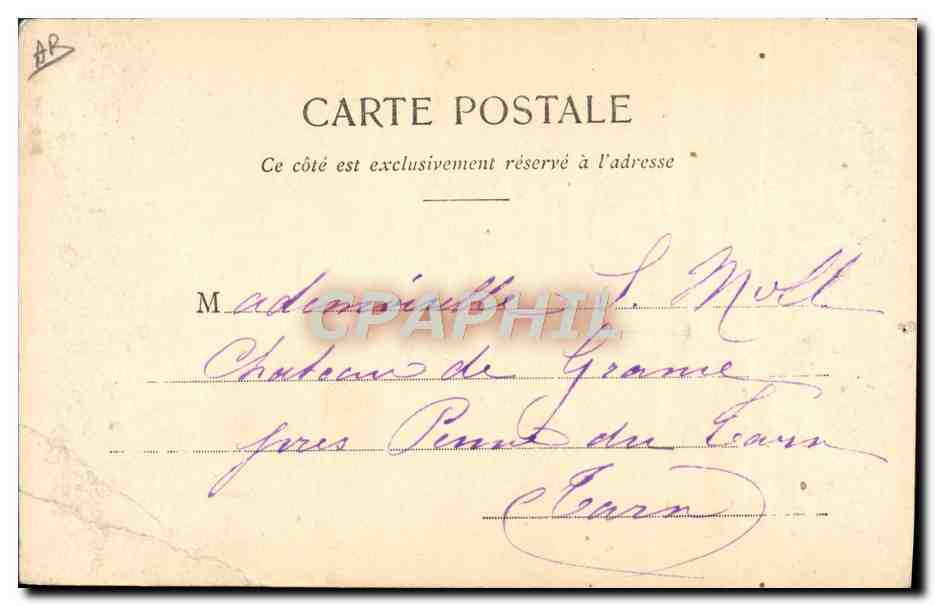 AR
CARTE POSTALE
Ce côté est exclusivement réservé à l'adresse
Mademoiselle S. Moll
Chateau de
près Penne du Tarn
Tarn
CPAPHIL